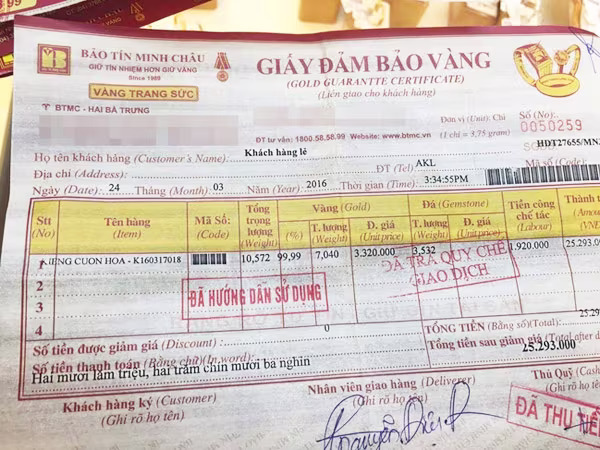 BẢO TÍN MINH CHÂU
GIỮ TÍN NHIỆM HƠN GIỮ VÀNG
Since 1989
VÀNG TRANG SỨC
GIẤY ĐẢM BẢO VÀNG
(GOLD GUARANTTE CERTIFICATE)
(Liên giao cho khách hàng)
BTMC - HAI BÀ TRƯNG
Đơn vị (Unit): Chỉ
(1 chỉ = 3,75 gram)
Số (No):
0050259
ĐT tư vấn: 1800.58.58.99 Website: www.btmc.vn
HDT27655/MN
Họ tên khách hàng (Customer's Name): Khách hàng lẻ
Địa chỉ (Address): ĐT (Tel) AKL Mã số
Ngày (Date) 24 Tháng (Month) 03 Năm (Year) 2016 Thời gian (Time) 3:34:55PM
Stt (No) Tên hàng (Item) Mã Số: (Code) Tổng trọng lượng (Weight) Vàng (Gold) (%) T. lượng (Weight) Đ. giá (Unit price) Đá (Gemstone) T. lượng (Weight) Đ. giá (Unit price) Tiền công chế tác (Labour) Thành
1 CUON HOA - K160317018 10,572 99,99 7,040 3.320.000 3,532 1.920.000 25.293.0
2
3
4
ĐÃ HƯỚNG DẪN SỬ DỤNG
ĐÃ TRẢ QUY CHẾ
GIAO DỊCH
Số tiền được giảm giá (Discount) : 0
TỔNG TIỀN (Bằng số)(Total): 25.29
Số tiền thanh toán (Bằng chữ)(In word):
Tổng tiền sau giảm giá (Total after
25.293.000
Hai mươi lăm triệu, hai trăm chín mươi ba nghìn
Khách hàng ký (Customer)
(Ghi rõ họ tên)
Nhân viên giao hàng (Deliverer)
(Ghi rõ họ tên)
Thủ Quỹ (Cash
(Ghi rõ họ
ĐÃ THU TIỀ